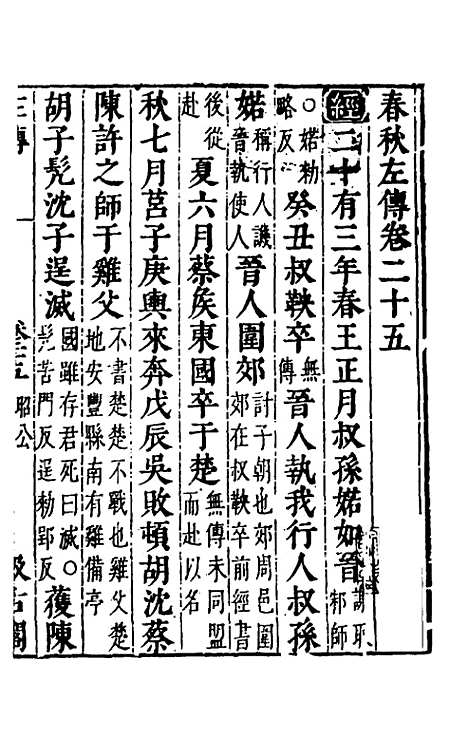 春秋左傳卷二十五
經二十有三年春王正月叔孫婼如晉謝取邾師
○婼勑略反癸丑叔鞅卒無傳晉人執我行人叔孫
婼稱行人譏晉執使人晉人圍郊討子朝也郊周邑圍郊在叔鞅卒前經書
後從赴夏六月蔡侯東國卒于楚無傳未同盟而赴以名
秋七月莒子庚輿來奔戊辰吳敗頓胡沈蔡
陳許之師于雞父不書楚楚不戰也雞父楚地安豐縣南有雞備亭
胡子髡沈子逞滅國雖存君死曰滅○髡苦門反逞勑郢反獲陳
左傳
卷二十五 昭公
汲古閣